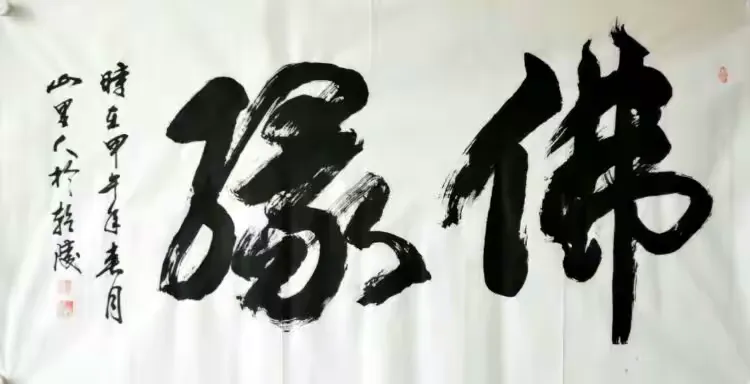 佛缘
時在甲午年春月
山里人於乾陵